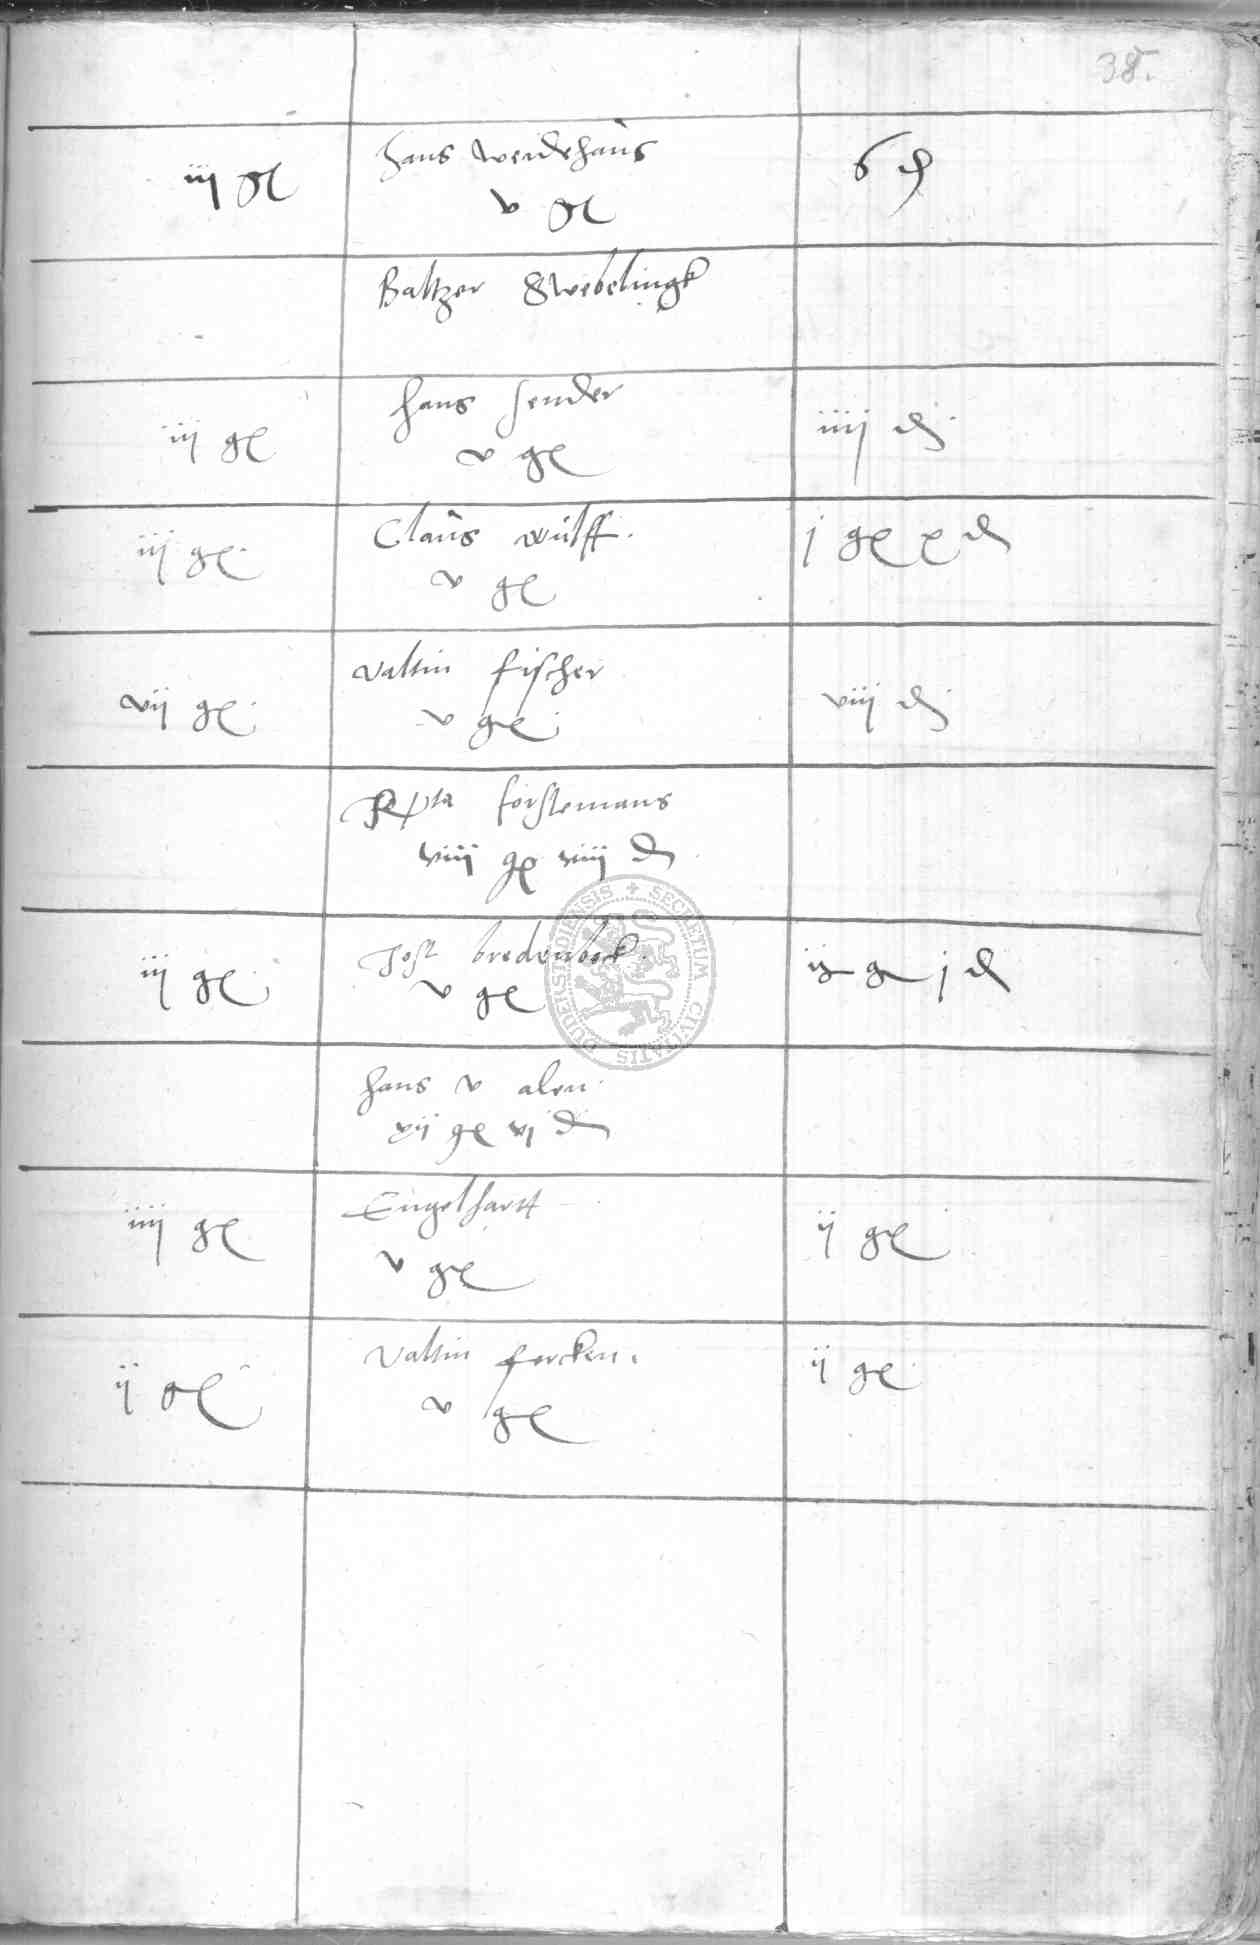 38.
hans wendehans
iij gℓ v gℓ 6 ₰
Baltzer Swebelingk
hans sender
iij gℓ v gℓ iiij ₰
Claus wulff.
iij gℓ v gℓ j gℓ x ₰
valtin fischer
vij gℓ v gℓ viij ₰
forstemans
viiij gℓ viiij ₰
Jost bredenbock
iij gℓ v gℓ j ₰
hans v alen
vij gℓ vj ₰
Engelhartt
iiij gℓ v gℓ ij gℓ
valtin forcken.
ij gℓ v gℓ ij gℓ
SECRETUM CIVITATIS DUDERSTADIENSIS